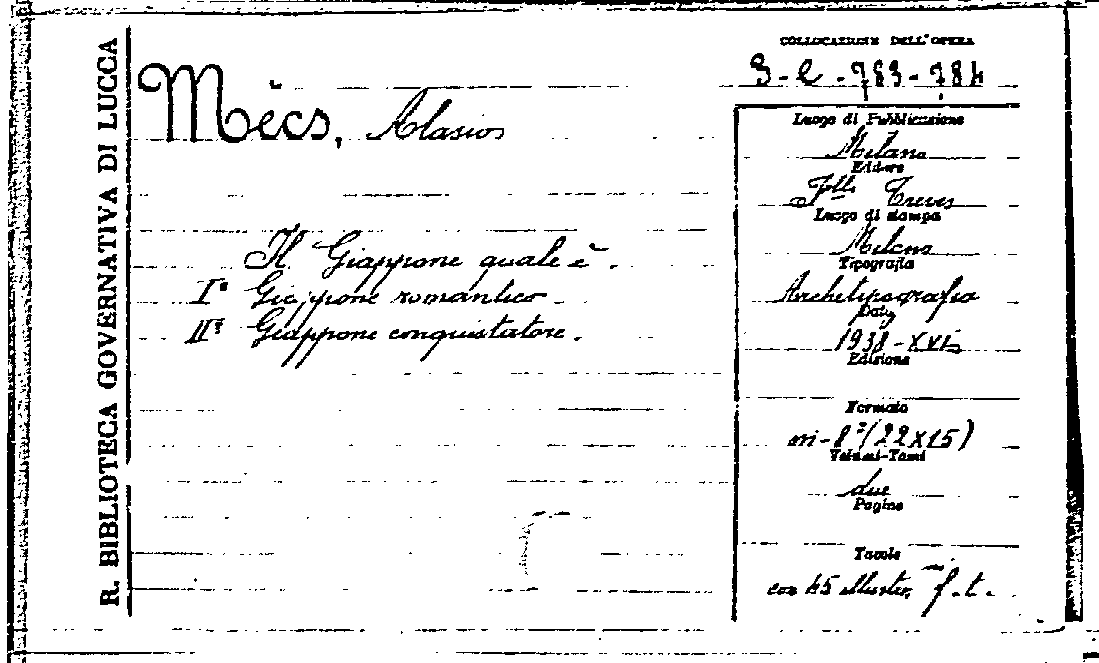 R. BIBLIOTECA GOVERNATIVA DI LUCCA
Mècs, Alasios
Il Giappone quale è.
I° Giappone romantico
II° Giappone conquistatore.
COLLOCAZIONE DELL'OPERA
3-e-783-784
Luogo di Pubblicazione
Milano
Editore
F.lli Treves
Luogo di stampa
Milano
Tipografia
Archetipografia
Data
1938-XVI
Edizione
Formato
in-8°(22x15)
Volumi-Tomi
due
Pagine
Tavole
con 45 illustr. f.t.